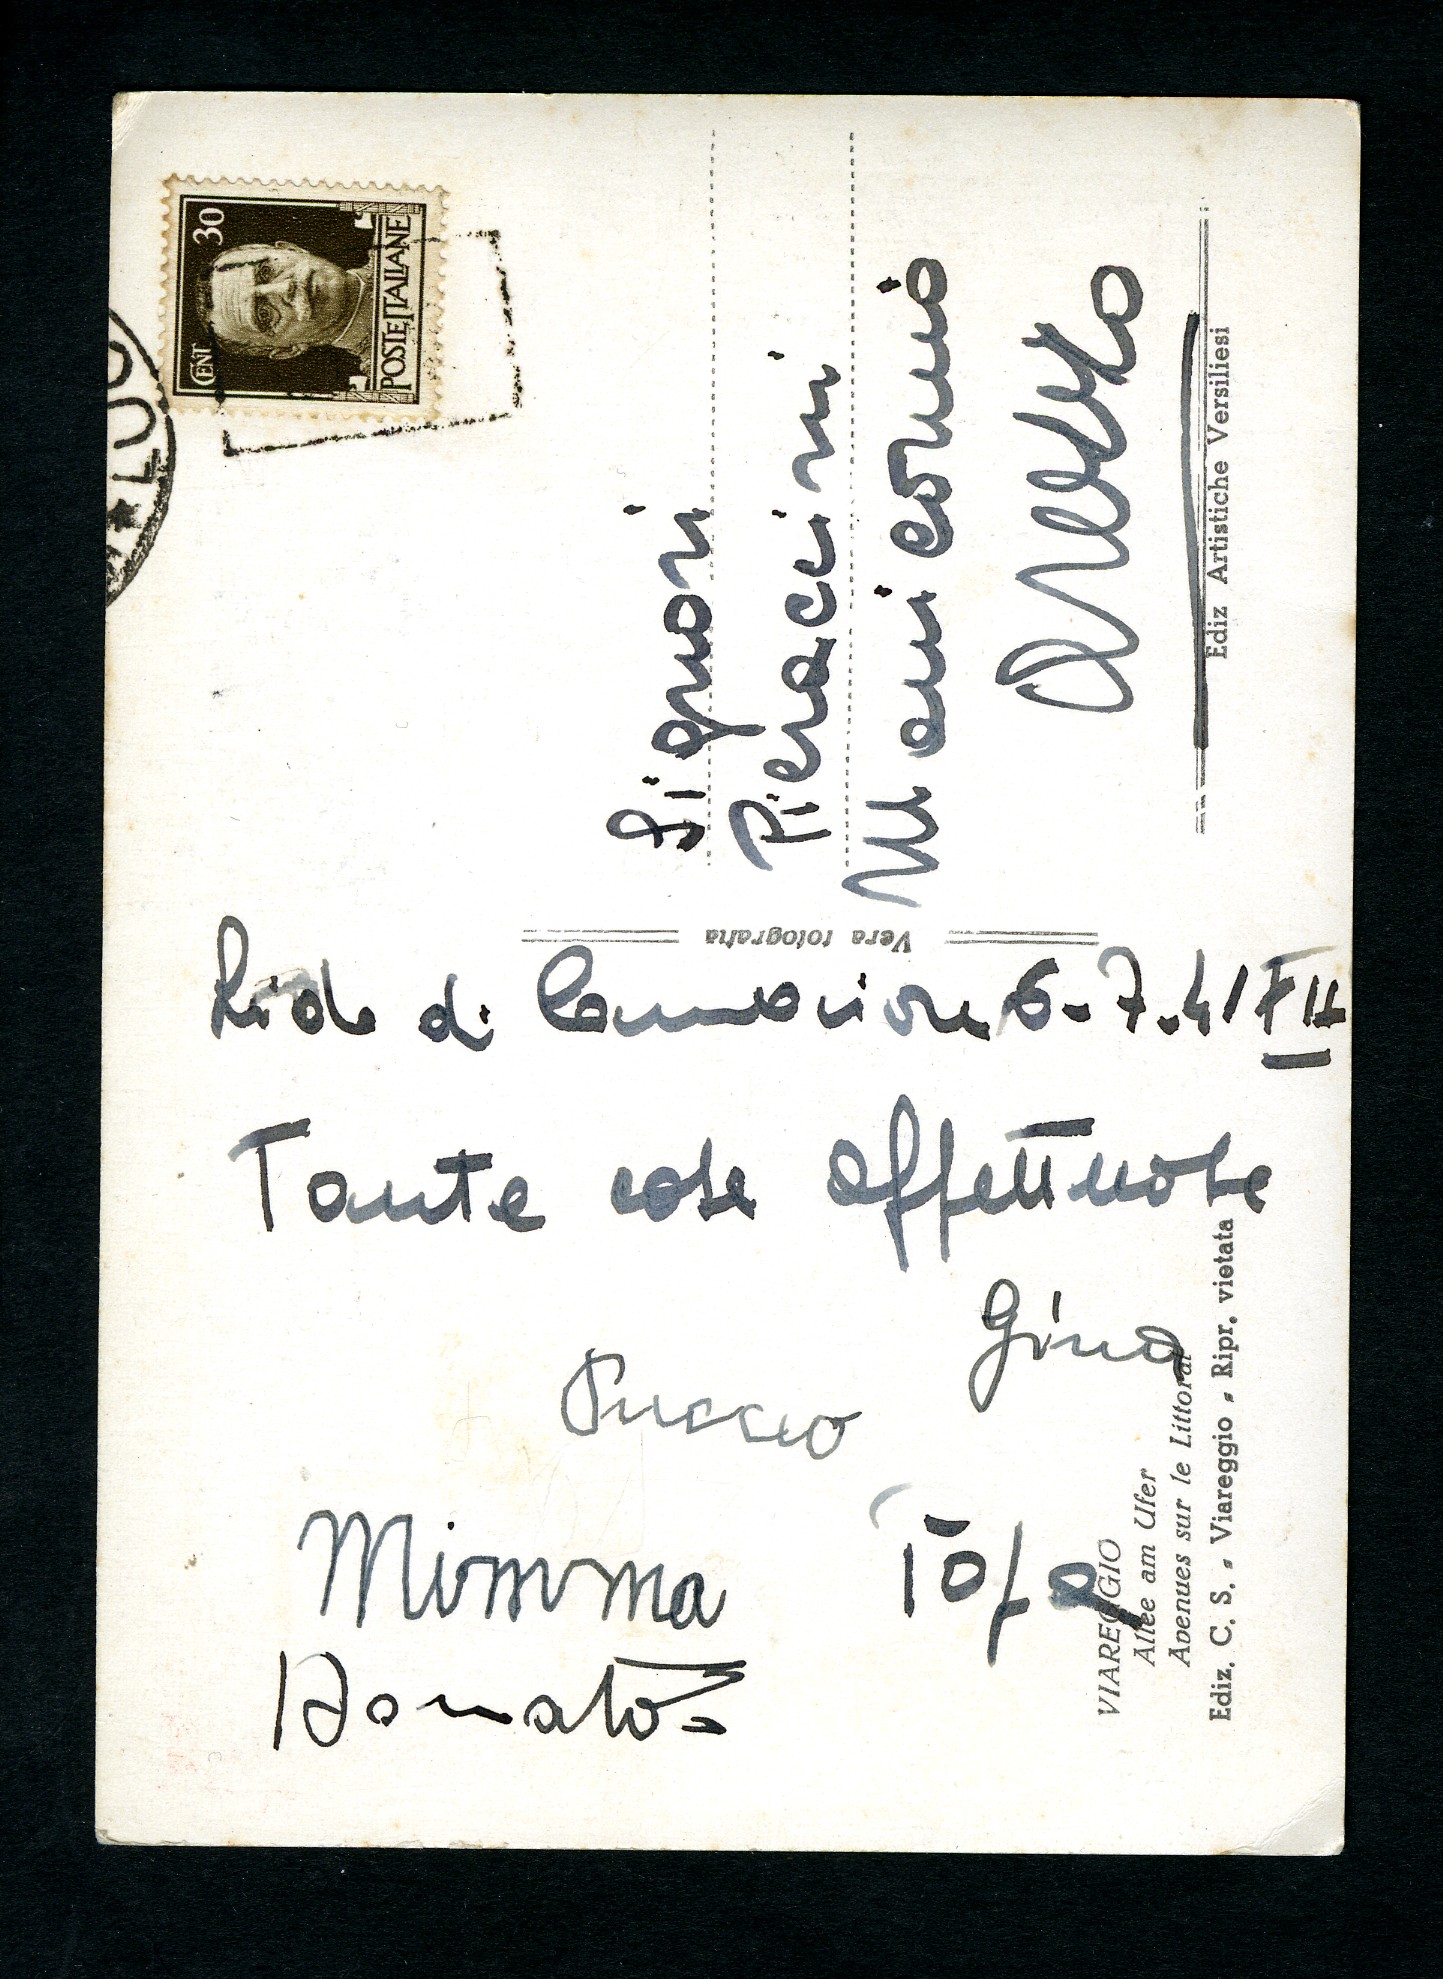 Lido di Camaiore 6-7-41 XIX
Tante cose affettuose
Gina
Puccio
Mimma
Tofa
Donato
Signori
Pieraccini
Manicomio
Arezzo
CENT 30
POSTE ITALIANE
LUC
Vera fotografia
VIAREGGIO
Allee am Ufer
Avenues sur le Littoral
Ediz. C. S. - Viareggio - Ripr. vietata
Ediz Artistiche Versiliesi